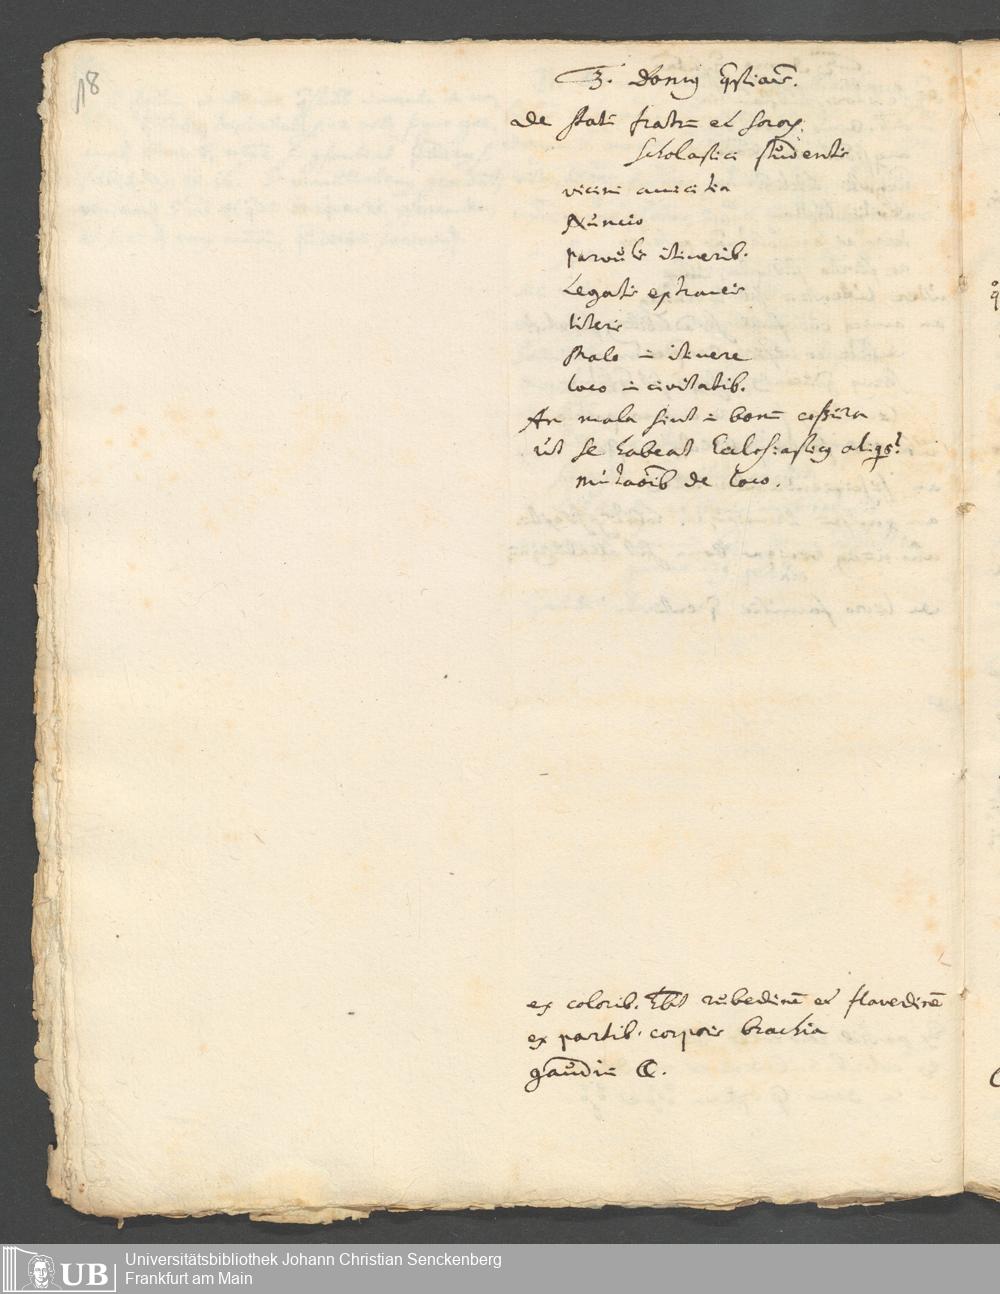 18
3. domus qstiões.
De statu fratrū et soror.
scholastici studentis
vicini amicitia
Nuncio
parvulis itinerib.
Legatis extraneis
literis
Malo in itinere
loco in civitatib.
An mala sint in bonū
ut se habeat Ecclesiasticus
de loco.
ex colorib. rubedinē et flavedinē
ex partib. corporis brachia
gaudiū ☾.
UB
Universitätsbibliothek Johann Christian Senckenberg
Frankfurt am Main